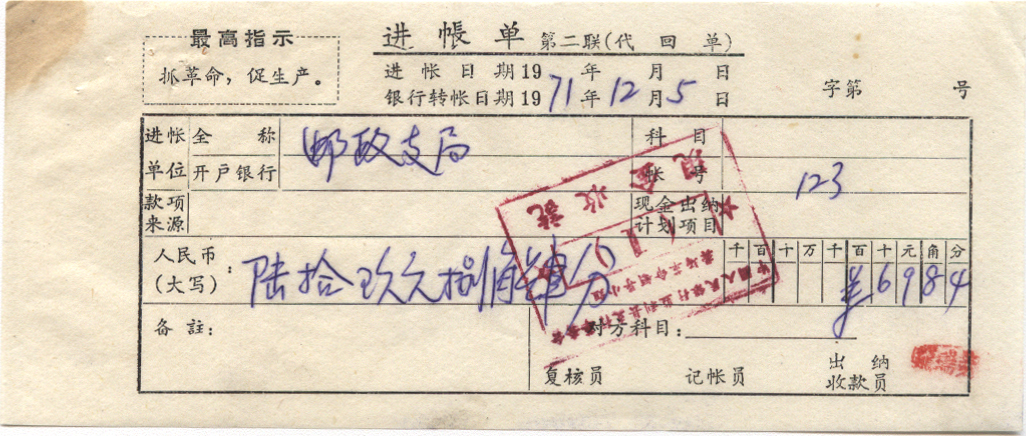 最高指示
抓革命，促生产。
进帐单 第二联(代回单)
进帐日期19 年 月 日
银行转帐日期1971年12月5日
字第 号
进帐单位 全称 邮政支局 科目
开户银行 帐号 123
款项来源 现金出纳计划项目
人民币(大写)： 陆拾玖元捌角肆分 千百十万千百十元角分 ¥6984
备註： 对方科目：
复核员 记帐员 出纳收款员
现金收讫